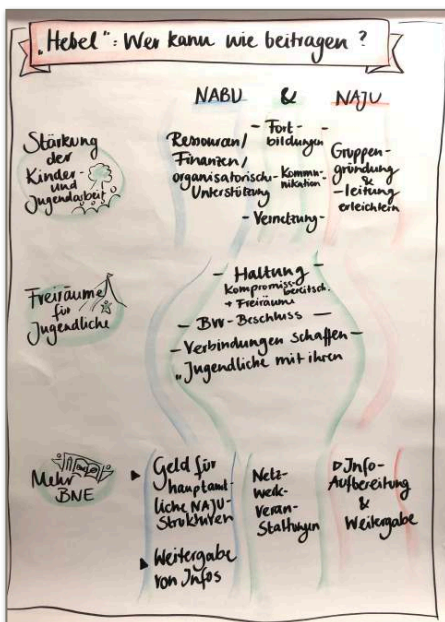 „Hebel": Wer kann wie beitragen?
NABU & NAJU
Stärkung
der
Kinder-
und
Jugendarbeit
Ressourcen/
Finanzen/
organisatorische
Unterstützung
- Fort-
bildungen
Kommu-
nikation -
- Vernetzung -
Gruppen-
gründung
&
-leitung
erleichtern
Freiräume
für
Jugendliche
- Haltung -
Kompromiss-
bereitsch.
+ Freiräume
- BVV-Beschluss -
- Verbindungen schaffen -
„Jugendliche mit ihren
Mehr
BNE
▸ Geld für
hauptamt-
liche NAJU-
Strukturen
▸ Weitergabe
von Infos
Netz-
werk-
veran-
staltungen
▹ Info-
Aufbereitung
&
Weitergabe